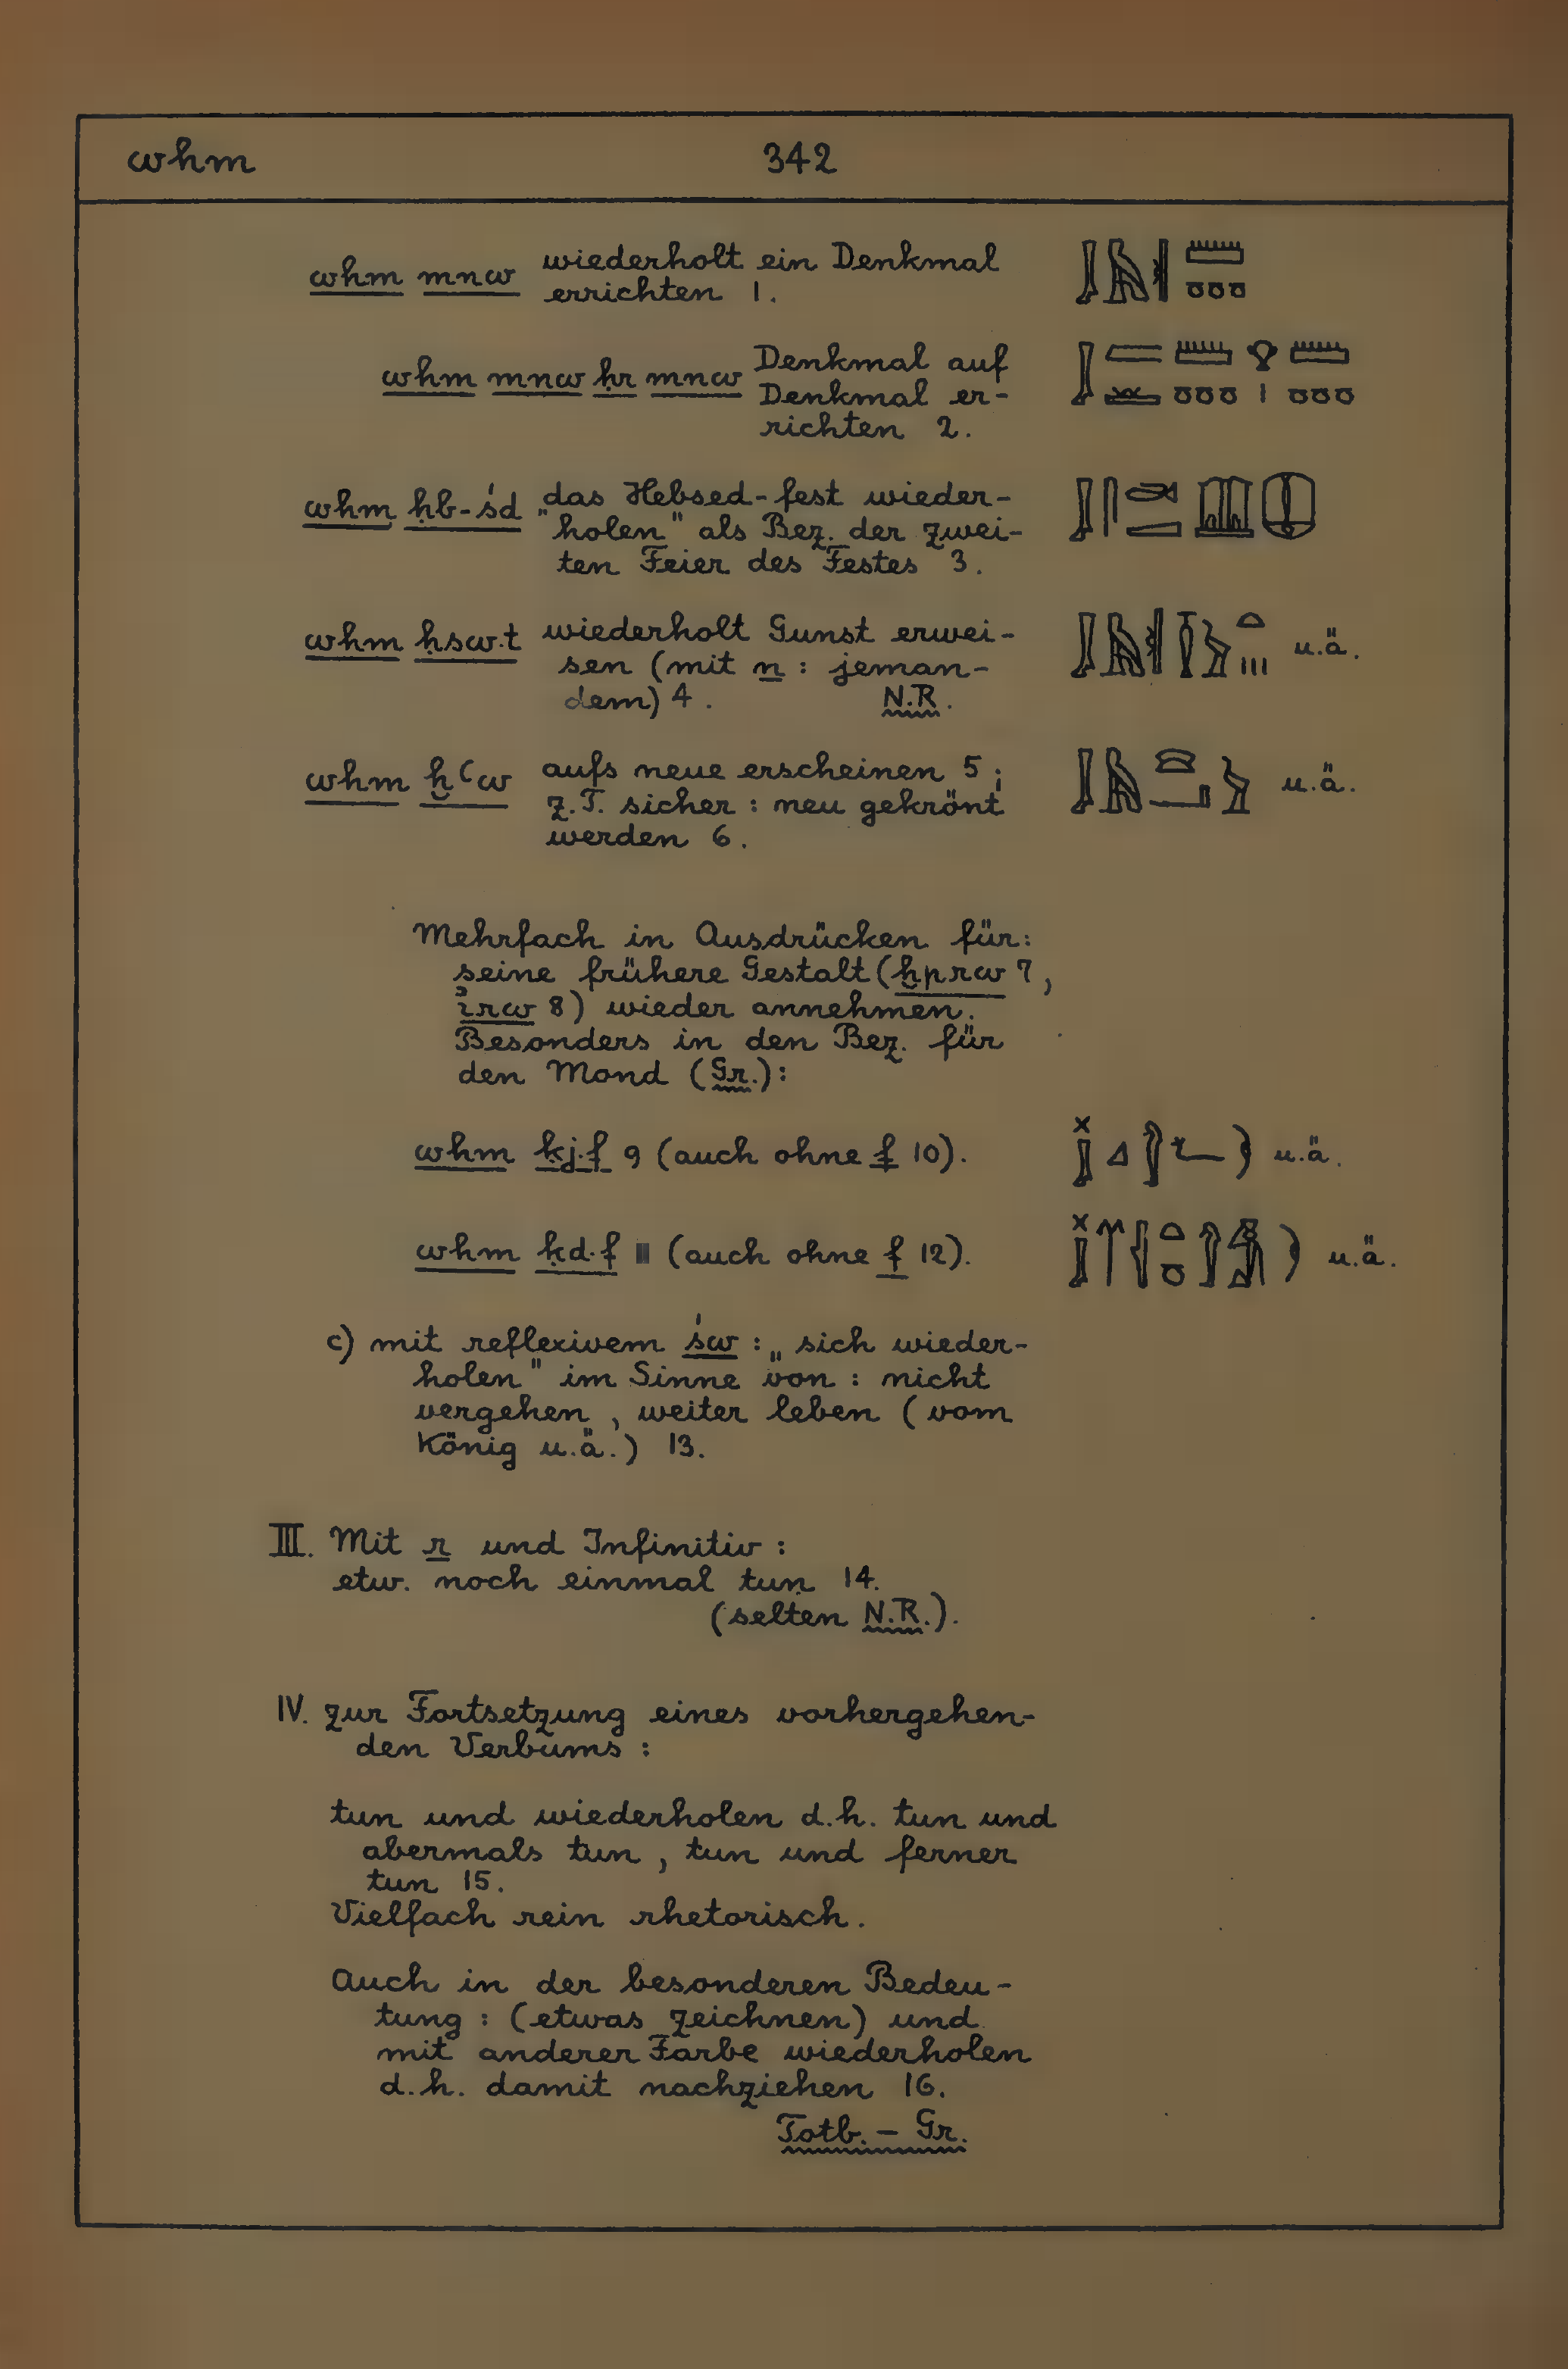 whm 342
whm mnw wiederholt ein Denkmal
errichten 1.
whm mnw ḥr mnw Denkmal auf
Denkmal er-
richten 2.
whm ḥb-śd „das Hebsed-fest wieder-
holen" als Bez. der zwei-
ten Feier des Festes 3.
whm ḥsw.t wiederholt Gunst erwei- u.ä.
sen (mit n : jeman-
dem) 4. N.R.
whm ḫꜥw aufs neue erscheinen 5; u.ä.
z.T. sicher : neu gekrönt
werden 6.
Mehrfach in Ausdrücken für:
seine frühere Gestalt (ḫprw 7,
ꞽrw 8) wieder annehmen.
Besonders in den Bez. für
den Mond (Gr.):
whm ḳj.f 9 (auch ohne f 10). u.ä.
whm ḳd.f 11 (auch ohne f 12). u.ä.
c) mit reflexivem św : „sich wieder-
holen" im Sinne von : nicht
vergehen, weiter leben (vom
König u.ä.) 13.
III. Mit r und Infinitiv :
etw. noch einmal tun 14.
(selten N.R.).
IV. zur Fortsetzung eines vorhergehen-
den Verbums :
tun und wiederholen d.h. tun und
abermals tun, tun und ferner
tun 15.
Vielfach rein rhetorisch.
Auch in der besonderen Bedeu-
tung : (etwas zeichnen) und
mit anderer Farbe wiederholen
d.h. damit nachziehen 16.
Totb. – Gr.